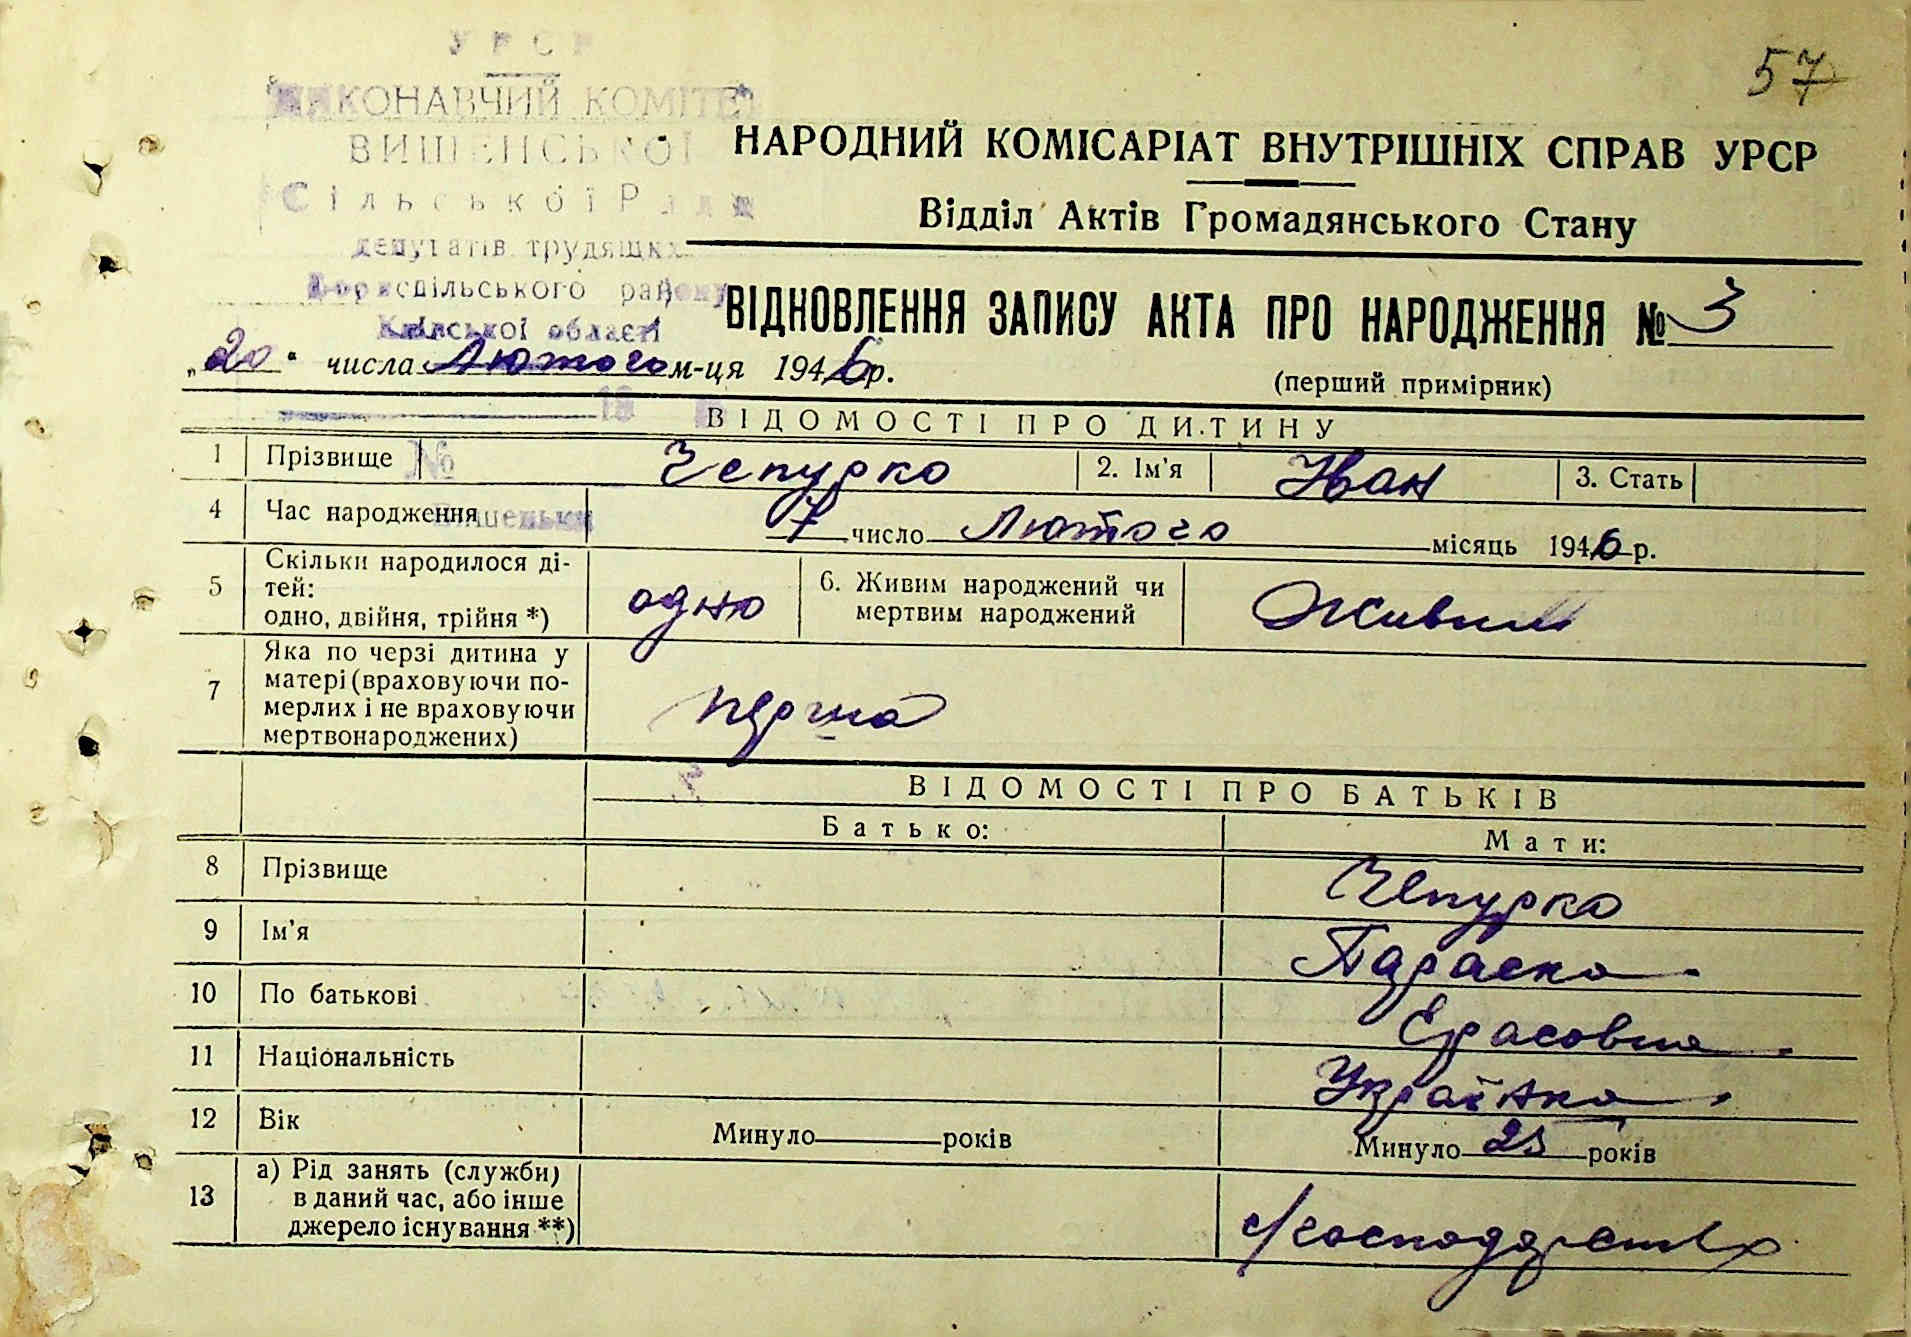 57
УРСР
ВИКОНАВЧИЙ КОМІТЕТ
ВИШЕНСЬКОЇ
Сільської Ради
депутатів трудящих
Бориспільського району
Київської області
19
№
Вишеньки
НАРОДНИЙ КОМІСАРІАТ ВНУТРІШНІХ СПРАВ УРСР
Відділ Актів Громадянського Стану
ВІДНОВЛЕННЯ ЗАПИСУ АКТА ПРО НАРОДЖЕННЯ № 3
„20" числа Лютого м-ця 1946 р.
(перший примірник)
ВІДОМОСТІ ПРО ДИТИНУ
1 Прізвище Чепурко 2. Ім'я Іван 3. Стать
4 Час народження 7 число Лютого місяць 1946 р.
5 Скільки народилося ді-
тей:
одно, двійня, трійня *) одно 6. Живим народжений чи
мертвим народжений Живим
7 Яка по черзі дитина у
матері (враховуючи по-
мерлих і не враховуючи
мертвонароджених) перша
ВІДОМОСТІ ПРО БАТЬКІВ
Батько: Мати:
8 Прізвище Чепурко
9 Ім'я Параска
10 По батькові
11 Національність Українка
12 Вік Минуло років Минуло 25 років
13 а) Рід занять (служби)
в даний час, або інше
джерело існування **)